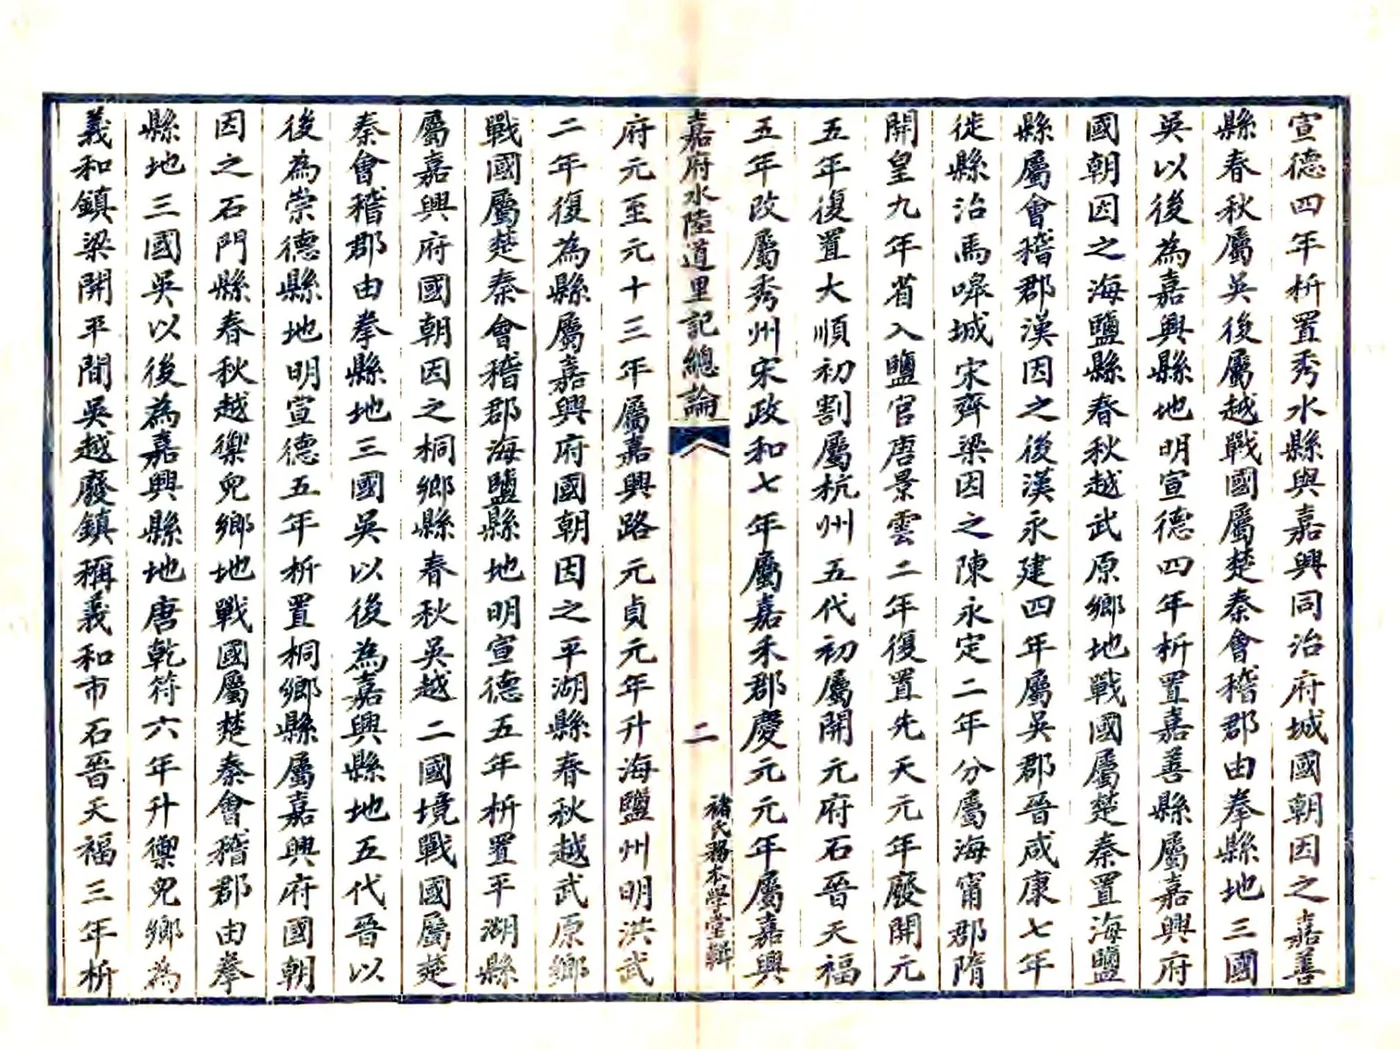 宣德四年析置秀水縣與嘉興同治府城國朝因之嘉善
縣春秋屬吳後屬越戰國屬楚秦會稽郡由拳縣地三國
吳以後為嘉興縣地明宣德四年析置嘉善縣屬嘉興府
國朝因之海鹽縣春秋越武原鄉地戰國屬楚秦置海鹽
縣屬會稽郡漢因之後漢永建四年屬吳郡晉咸康七年
徙縣治馬嘷城宋齊梁因之陳永定二年分屬海甯郡隋
開皇九年省入鹽官唐景雲二年復置先天元年廢開元
五年復置大順初割屬杭州五代初屬開元府石晉天福
五年改屬秀州宋政和七年屬嘉禾郡慶元元年屬嘉興
嘉府水陸道里記總論
二
褚氏務本學堂輯
府元至元十三年屬嘉興路元貞元年升海鹽州明洪武
二年復為縣屬嘉興府國朝因之平湖縣春秋越武原鄉
戰國屬楚秦會稽郡海鹽縣地明宣德五年析置平湖縣
屬嘉興府國朝因之桐鄉縣春秋吳越二國境戰國屬楚
秦會稽郡由拳縣地三國吳以後為嘉興縣地五代晉以
後為崇德縣地明宣德五年析置桐鄉縣屬嘉興府國朝
因之石門縣春秋越禦兒鄉地戰國屬楚秦會稽郡由拳
縣地三國吳以後為嘉興縣地唐乾符六年升禦兒鄉為
義和鎮梁開平間吳越廢鎮稱義和市石晉天福三年析